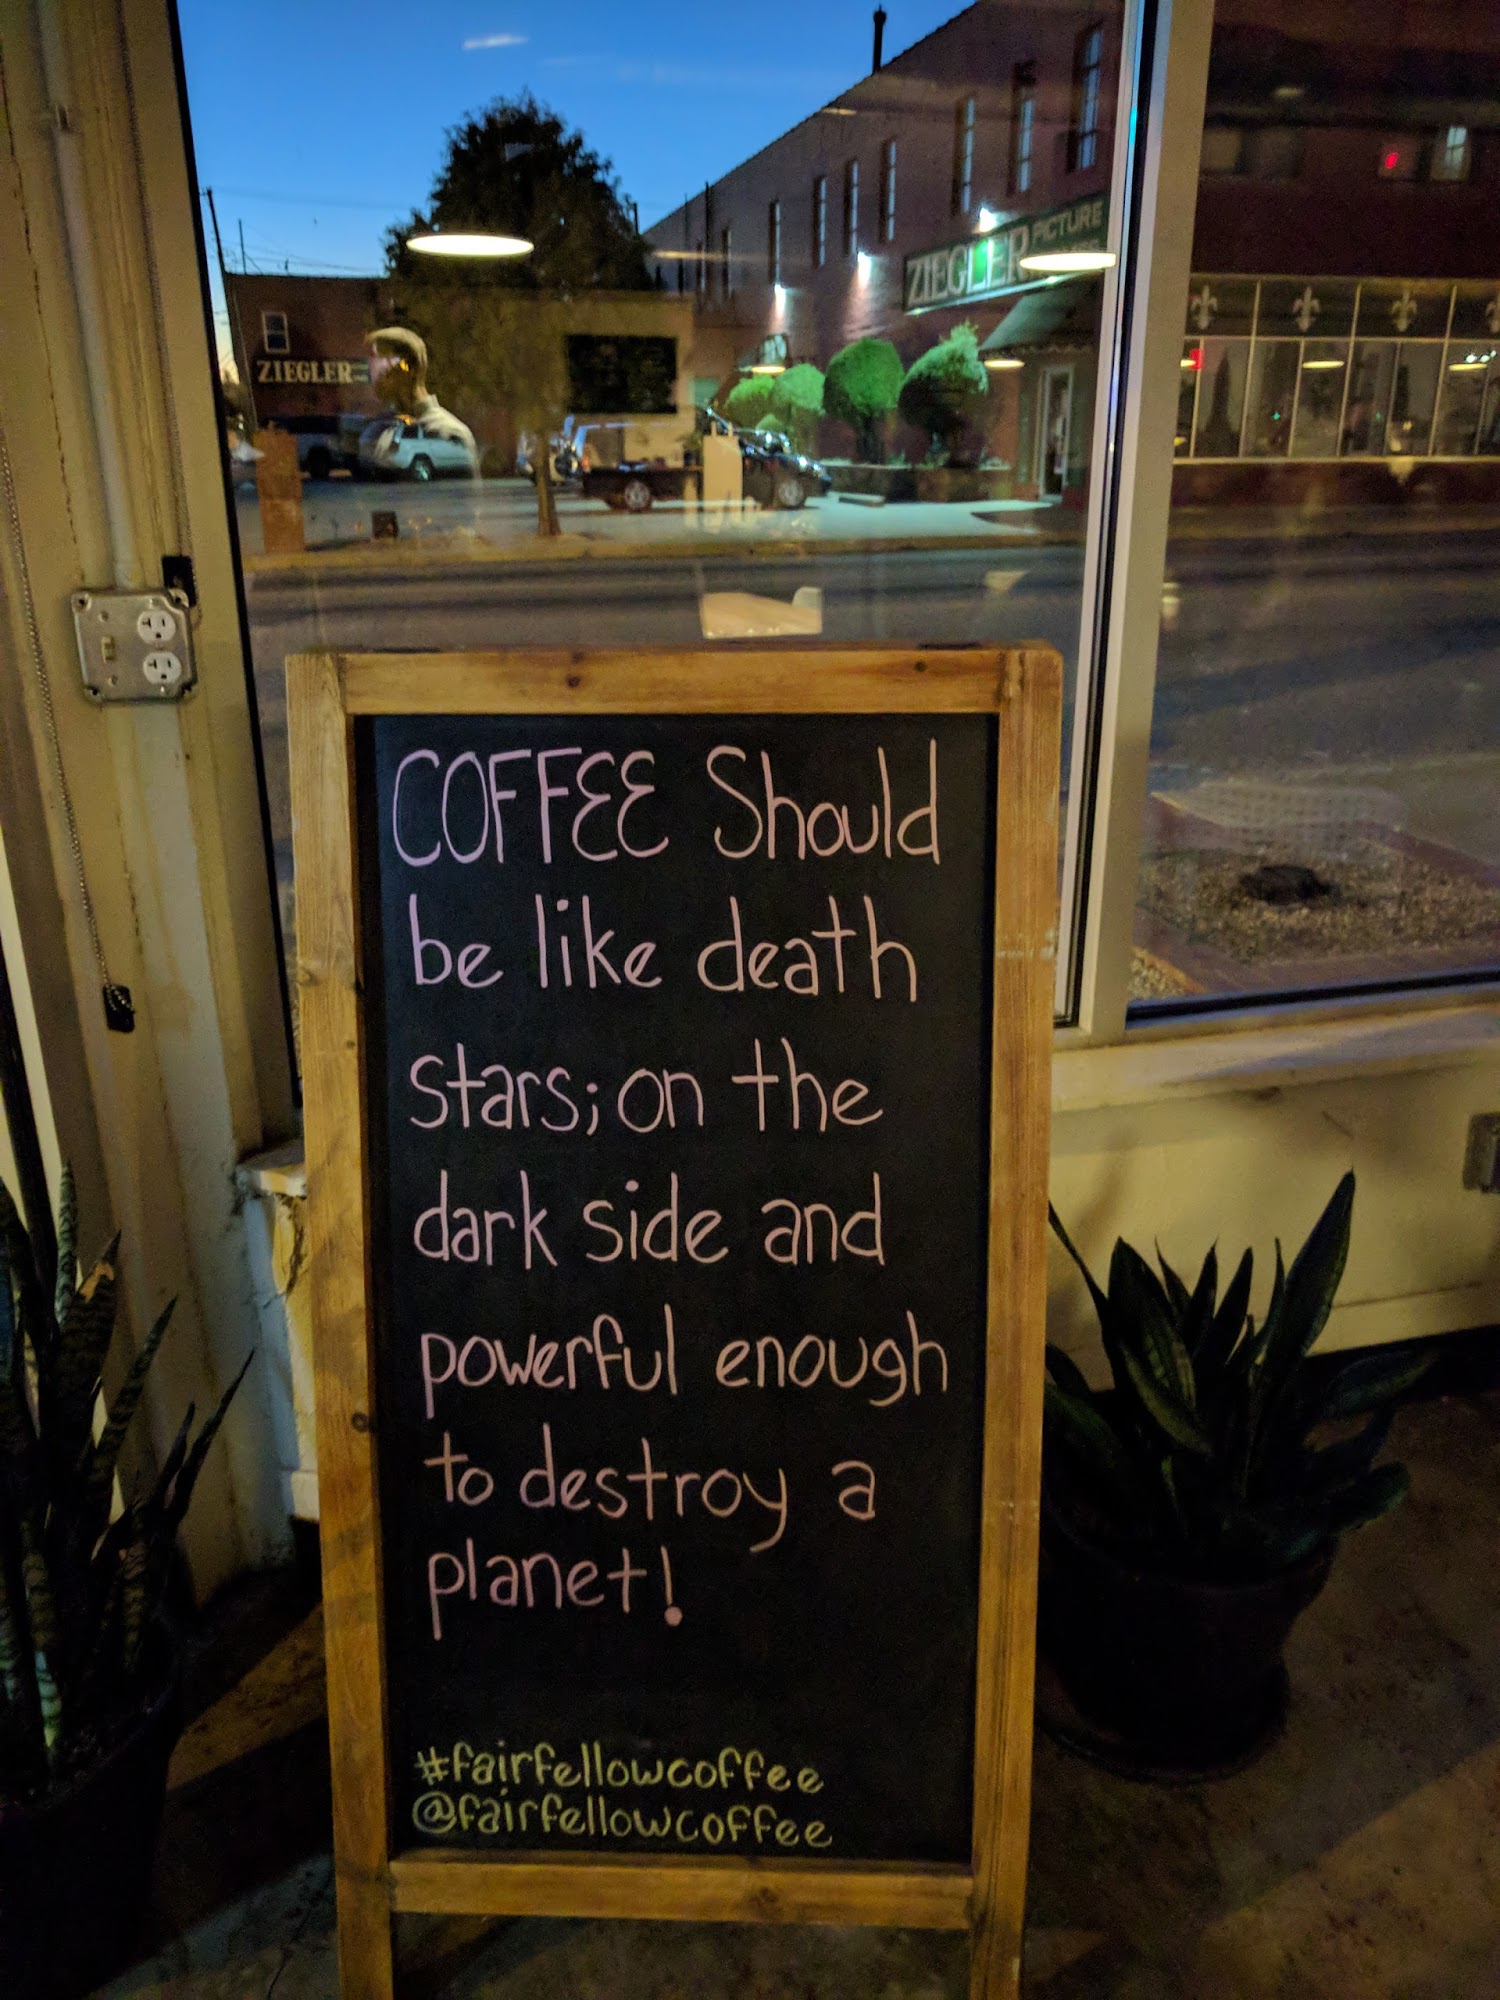 ZIEGLER PICTURE
ZIEGLER
COFFEE Should
be like death
stars; on the
dark side and
powerful enough
to destroy a
planet!
#fairfellowcoffee
@fairfellowcoffee